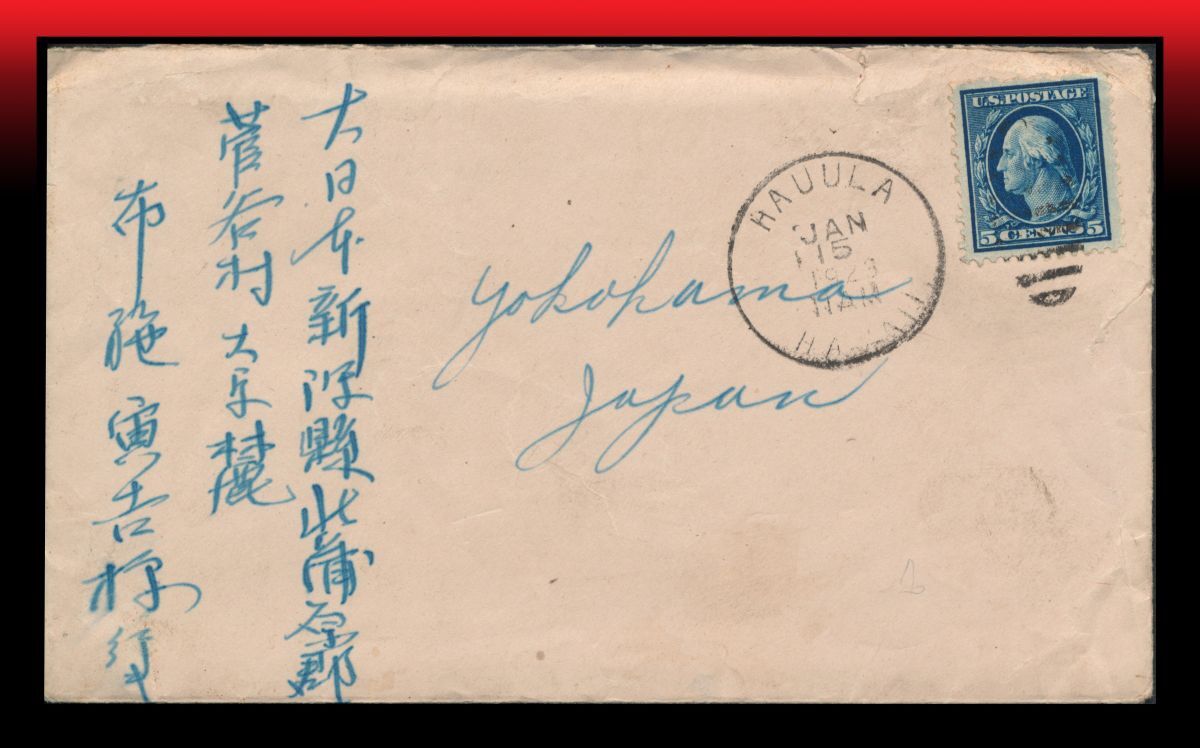 大日本新潟縣北蒲原郡
菅谷村大字麓
布施寅吉様行
Yokohama
Japan
HAUULA
JAN
15
1923
11AM
HAWAII
U.S. POSTAGE
5 CENTS 5